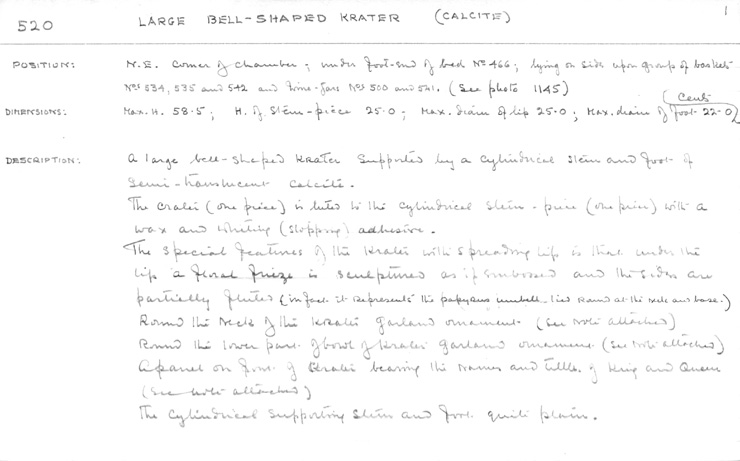 520 LARGE BELL-SHAPED KRATER (CALCITE) 1
POSITION: N.E. Corner of chamber; under foot-end of bed Nº 466; lying on side upon group of baskets
Nºs 534, 535 and 542 and wine-jars Nºs 500 and 541. (See photo 1145)
(Cents
DIMENSIONS: Max. H. 58.5; H. of stem-piece 25.0; Max. diam of lip 25.0; Max. diam of foot 22.0)
DESCRIPTION: A large bell-shaped Krater supported by a cylindrical stem and foot of
semi-translucent calcite.
The crater (one piece) is luted to the cylindrical stem-piece (one piece) with a
wax and whiting (stopping) adhesive.
The special features of the Krater with spreading lip is that under the
lip a floral frieze is sculptured as if embossed and the sides are
partially fluted (in fact it represents the papyrus umbell tied round at the neck and base.)
Round the neck of the Krater garland ornament (see note attached)
Round the lower part of bowl of Krater garland ornament (see note attached)
A panel on front of Krater bearing the names and titles of King and Queen
(See note attached)
The cylindrical supporting stem and foot quite plain.